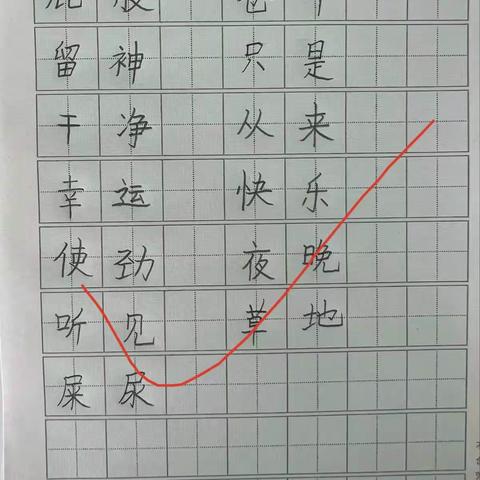 留神 只是
干净 从来
幸运 快乐
使劲 夜晚
听见 草地
屎尿